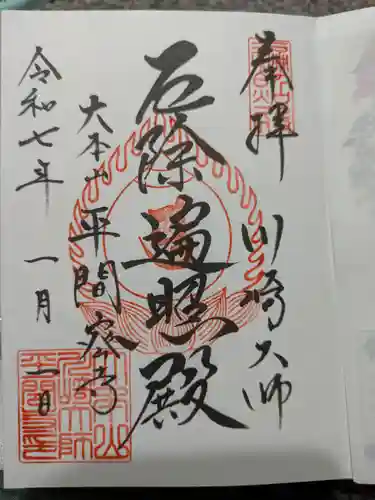 奉拝
川崎大師
厄除遍照殿
大本山
平間寺
令和七年
一月
一日